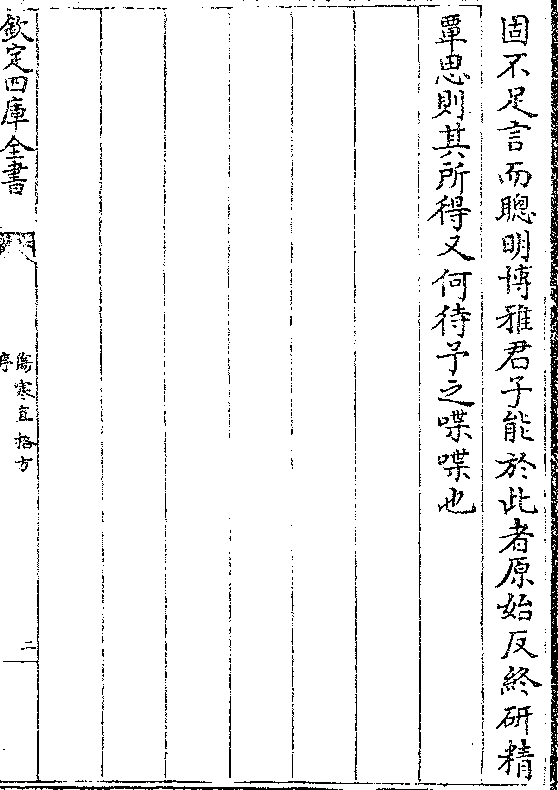 固不足言而聰明博雅君子能於此者原始反終研精
覃思則其所得又何待予之喋喋也
欽定四庫全書
傷寒直格方
序
二